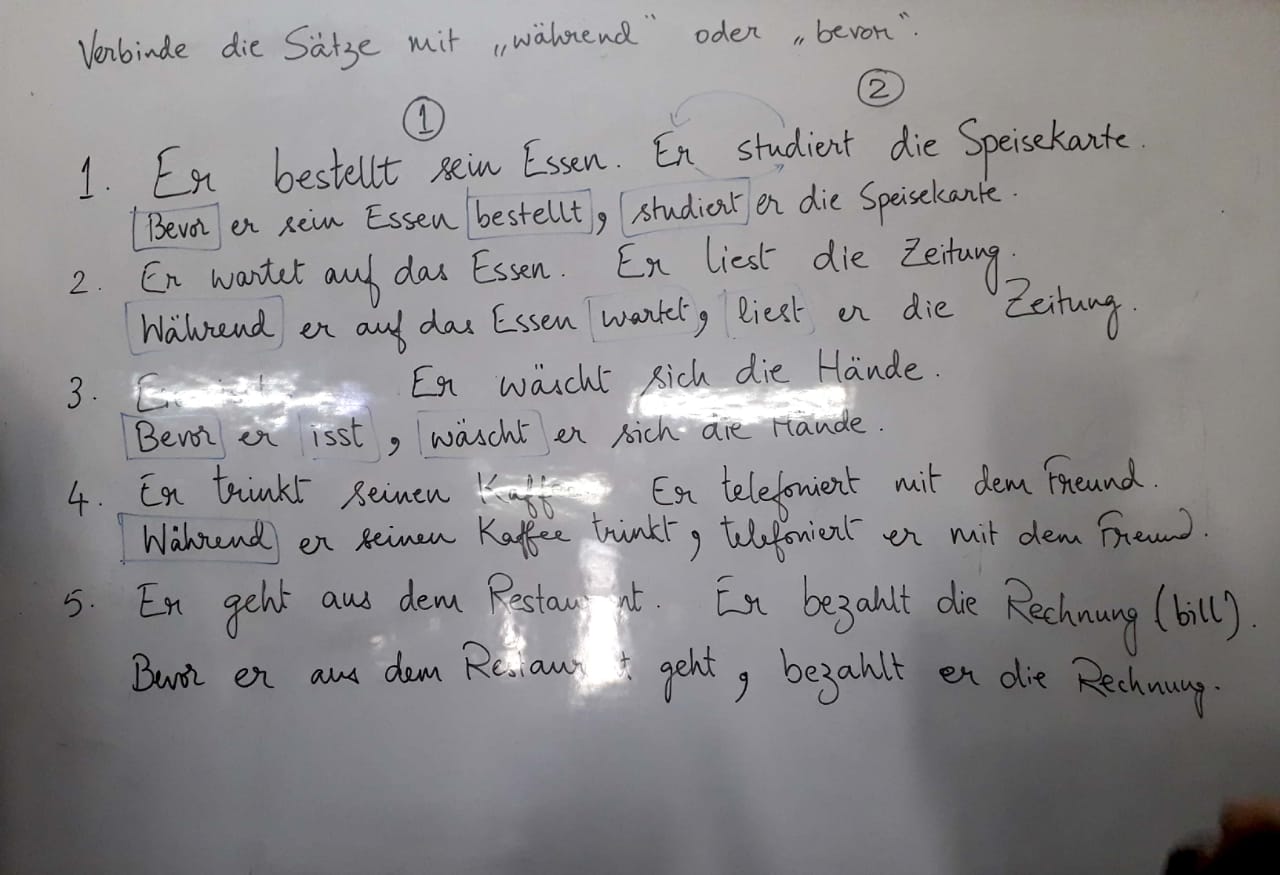 Verbinde die Sätze mit „während“ oder „bevor“.
① ②
1. Er bestellt sein Essen. Er studiert die Speisekarte.
Bevor er sein Essen bestellt, studiert er die Speisekarte.
2. Er wartet auf das Essen. Er liest die Zeitung.
Während er auf das Essen wartet, liest er die Zeitung.
3. Er wäscht sich die Hände.
Bevor er isst, wäscht er sich die Hände.
4. Er trinkt seinen Kaffee Er telefoniert mit dem Freund.
Während er seinen Kaffee trinkt, telefoniert er mit dem Freund.
5. Er geht aus dem Restaurant. Er bezahlt die Rechnung (bill).
Bevor er aus dem Restaurant geht, bezahlt er die Rechnung.